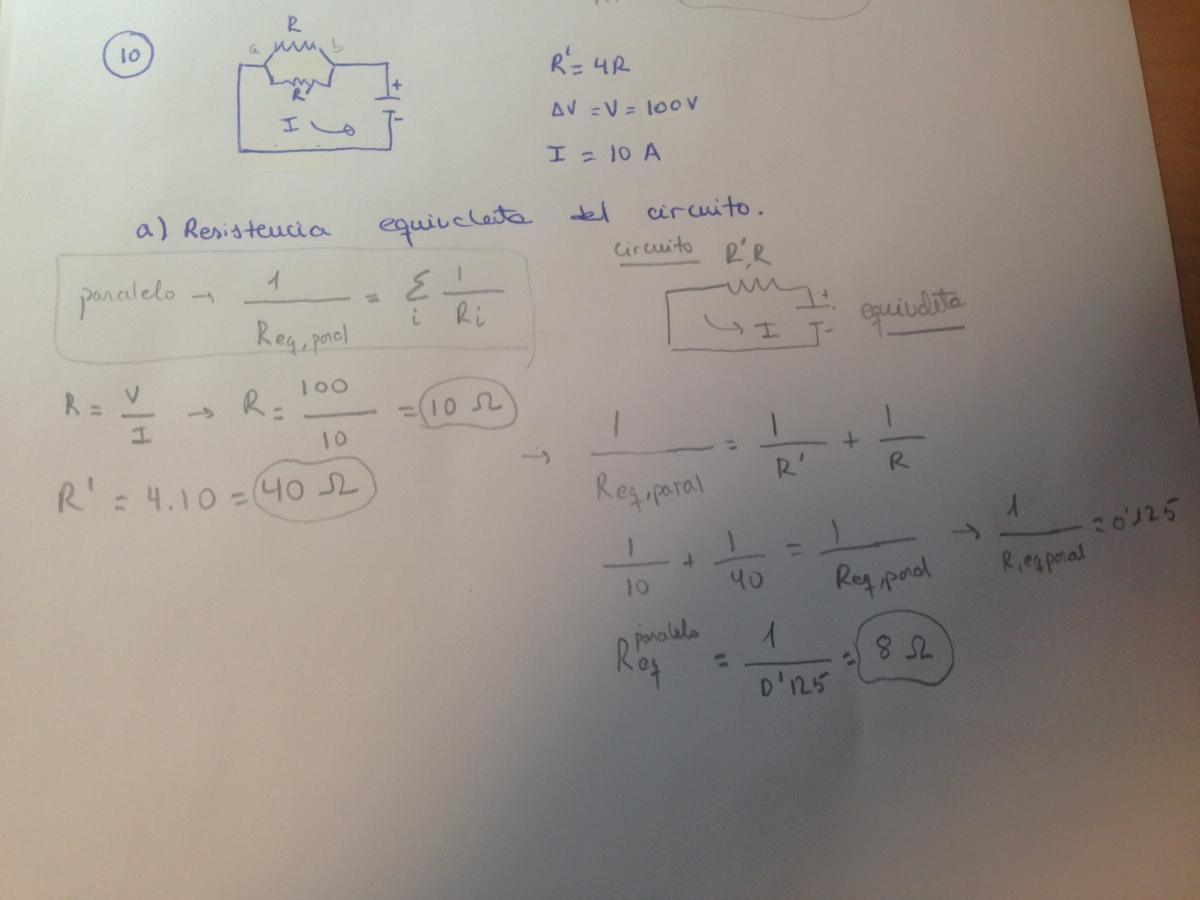 10
R
a b
R'
+
-
I
R' = 4R
ΔV = V = 100V
I = 10 A
a) Resistencia equivaleite del circuito.
paralelo → 1/Req,paral = Σi 1/Ri
circuito R',R
+
I -
equivaleite
R = V/I → R = 100/10 = 10 Ω
R' = 4.10 = 40 Ω
→ 1/Req,paral = 1/R' + 1/R
1/10 + 1/40 = 1/Req,paral → 1/R,eq paral = 0'125
Req paralelo = 1/0'125 = 8 Ω